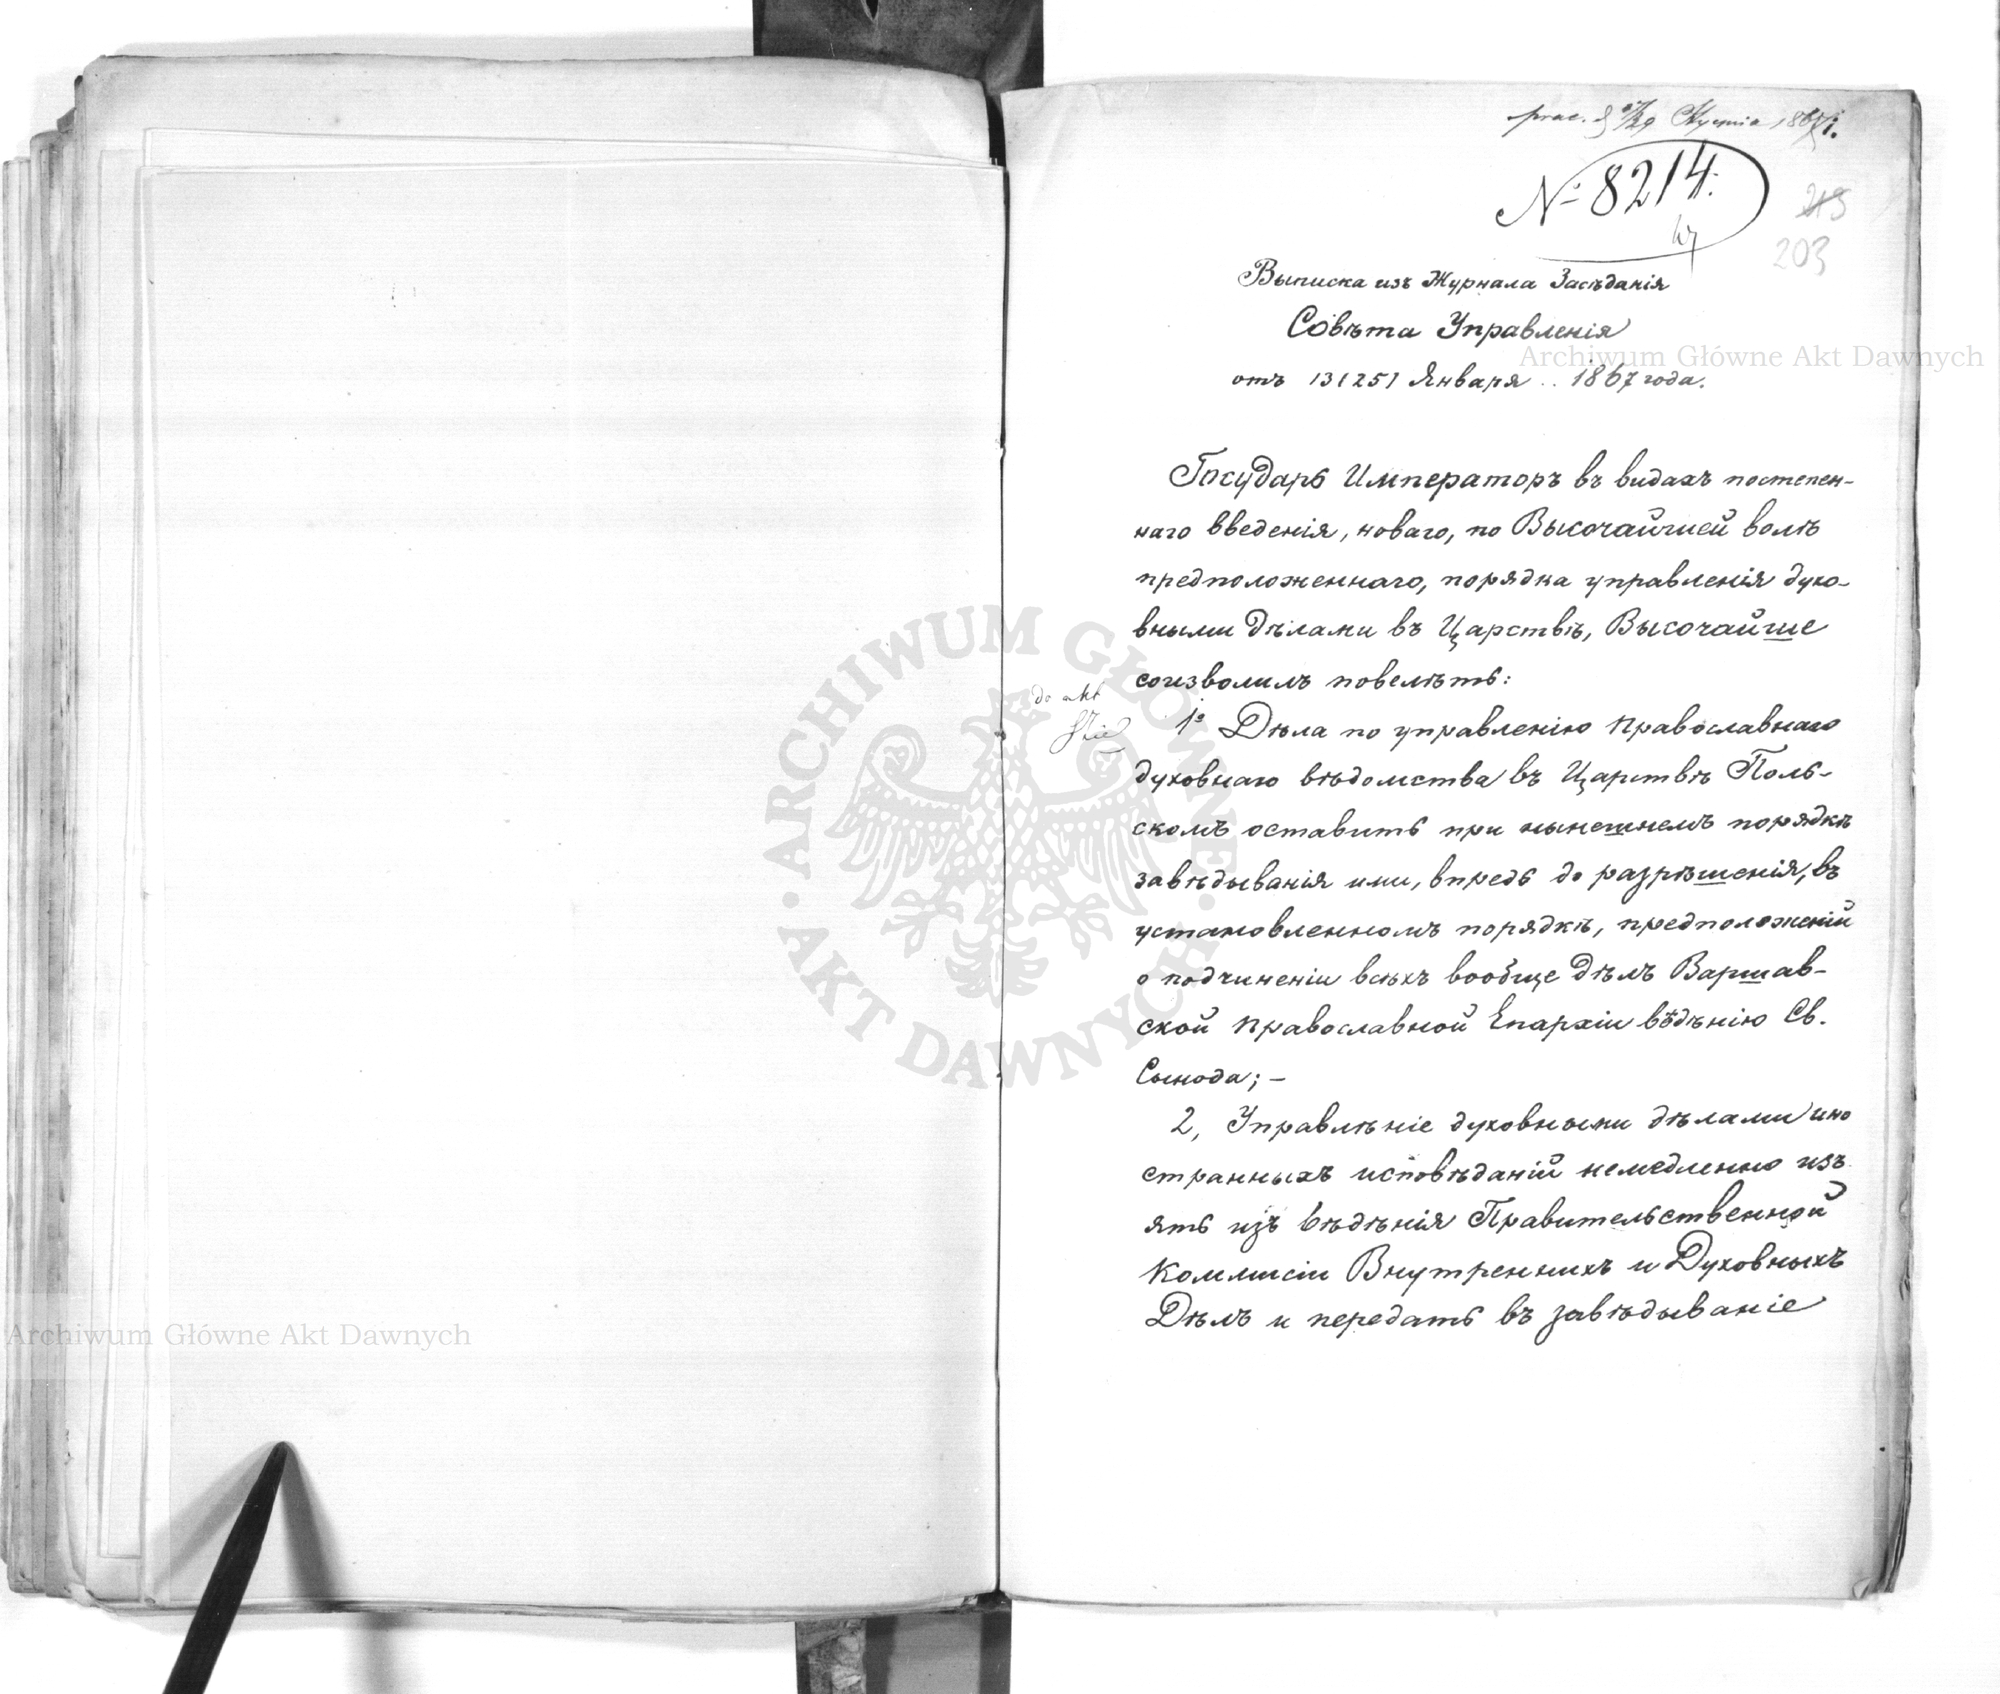 Stycznia 1867 r.
№ 8214.
213
203
Выписка изъ Журнала Засѣданія
Совѣта Управленія
отъ 13 (25) Января .. 1867 года.
Archiwum Główne Akt Dawnych
Государь Императоръ въ видахъ постепен-
наго введенія, новаго, по Высочайшей волѣ
предположеннаго, порядка управленія духо-
вными дѣлами въ Царствѣ, Высочайше
соизволилъ повелѣть:
do akt
1º Дѣла по управленію православнаго
духовнаго вѣдомства въ Царствѣ Поль-
скомъ оставить при нынешнемъ порядкѣ
завѣдыванія ими, впредь до разрѣшенія, въ
установленномъ порядкѣ, предположеній
о подчиненіи всѣхъ вообще дѣлъ Варшав-
ской православной Епархіи вѣдѣнію Св.
Сынода; –
2, Управлѣніе духовными дѣлами ино
странныхъ исповѣданій немедленно изъ
ять изъ вѣдѣнія Правительственной
Коммисіи Внутреннихъ и Духовныхъ
Дѣлъ и передать въ завѣдываніе
ARCHIWUM GŁÓWNE · AKT DAWNYCH ·
Archiwum Główne Akt Dawnych